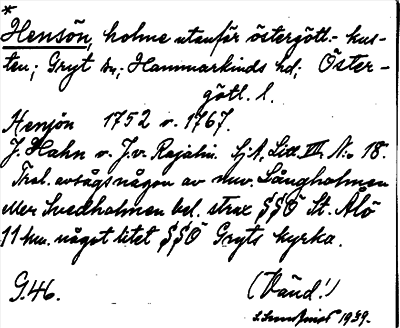 *
Hensön, holme utanför östergötl.- kus-
ten; Gryt sn; Hammarkinds hd; Öster-
götl. l.
Henjön 1752 o. 1767.
J. Hahn o. J.v. Rajalin. Sj.A, Litt. VII. N:o 18.
Trol. avsågs någon av nuv. Långholmen
eller Svedholmen bel. strax SSÖ St. Ålö
11 km. något litet SSÖ Gryts kyrka.
G.46. (Vänd!)
1939.